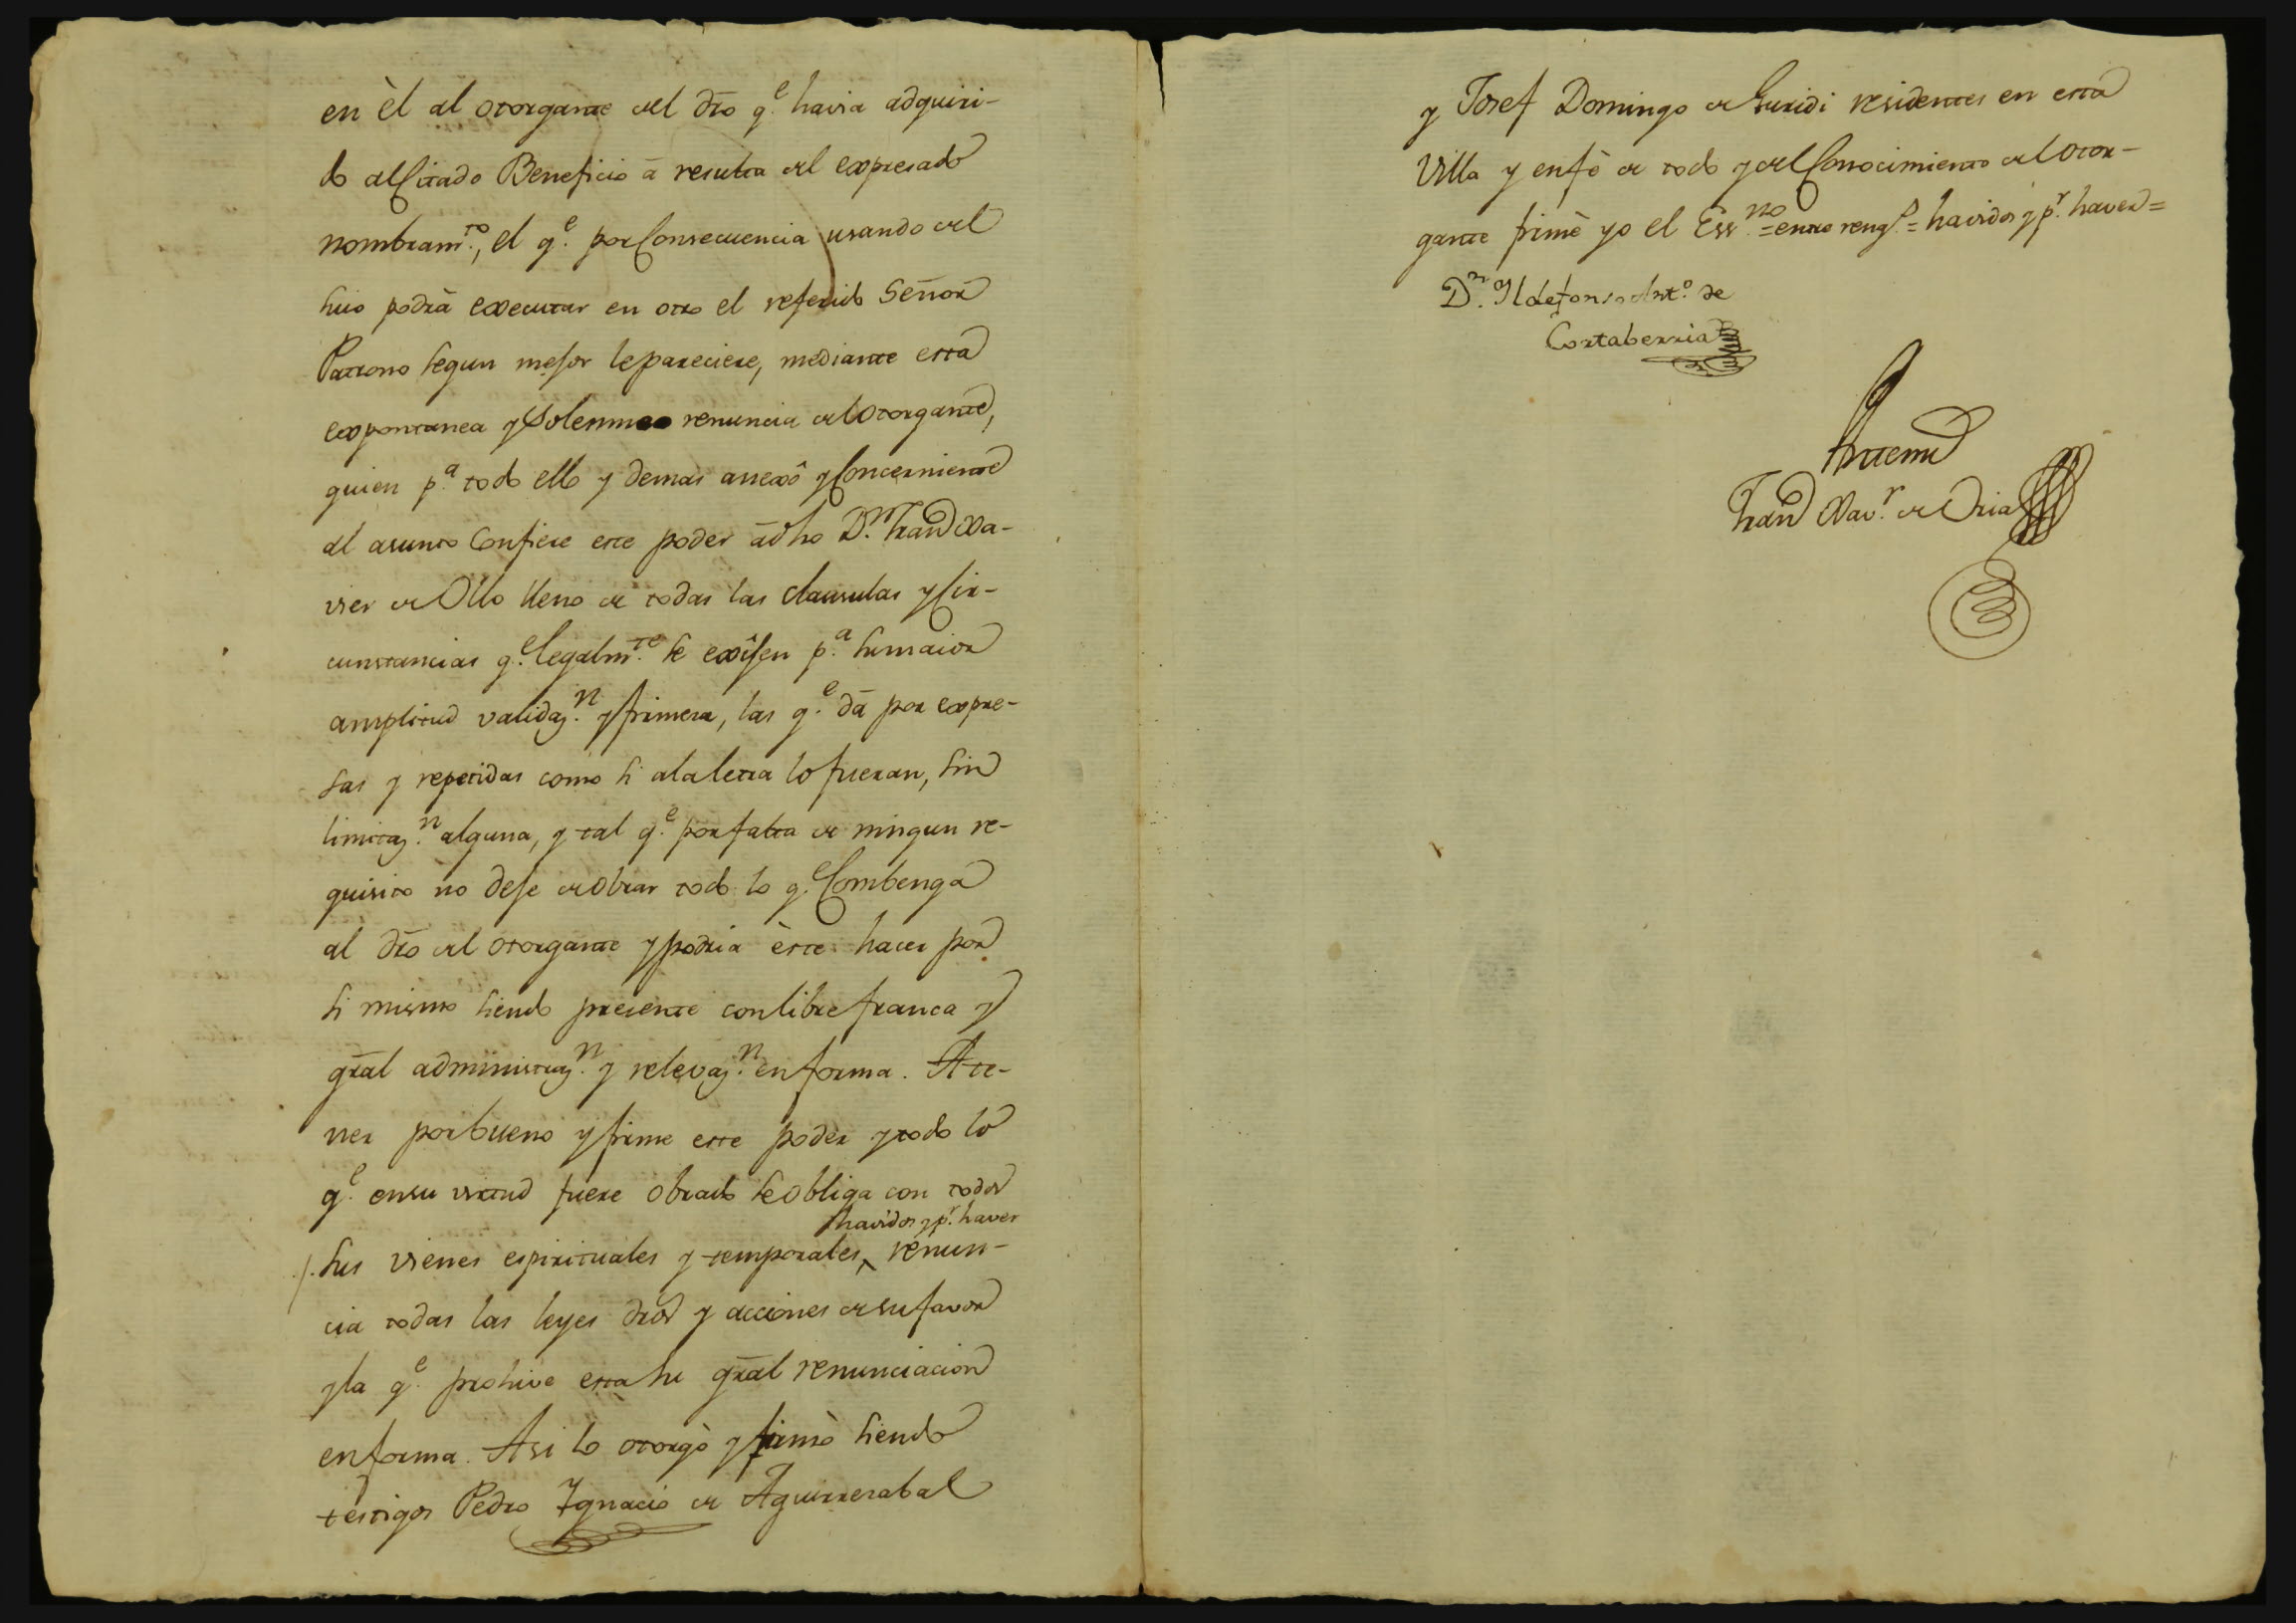 en èl al otorgante del dro q.e havia adquiri-
do al Citado Beneficio á resulta del expresado
nombram.to, el q.e por Consecuencia usando del
suio podrá executar en otro el referido Señor
Patrono segun mejor le pareciere, mediante esta
expontanea y Solemne renuncia del otorgante,
quien p.a todo ello y demas anexô y Concerniente
al asunto Confiere este poder á dho D.n Fran.co Xa-
vier de Ollo lleno de todas las clausulas y Cir-
cunstancias q.e legalm.te se exîjen p.a su maior
amplitud validaz.n y firmeza, las q.e dá por expre-
sas y repetidas como si ala letra lo fueran, sin
limitaz.n alguna, y tal q.e por falta de ningun re-
quisito no deje de obrar todo lo q.e Combenga
al dro del otorgante y podria èste hacer por
si mismo siendo presente con libre franca y
gral administraz.n y relevaz.n en forma. A te-
ner por bueno y firme este poder y todo lo
q.e en su virtud fuere obrado se obliga con todos
havidos y p.r haver
sus vienes espirituales y temporales, renun-
cia todas las leyes dros y acciones de su favor
y la q.e prohive esta su gral renunciacion
en forma. Asi lo otorgò y firmò siendo
testigos Pedro Ignacio de Aguirresabal
y Josef Domingo de Guridi residentes en esta
Villa y en fè de todo y del Conocimiento del otor-
gante firmè yo el Ess.no = entre reng.s = havidos y p.r haver =
D.n Ildefonso Ant.o de
Cortaberria
Antemi
Fran.co Xav.r de Oria